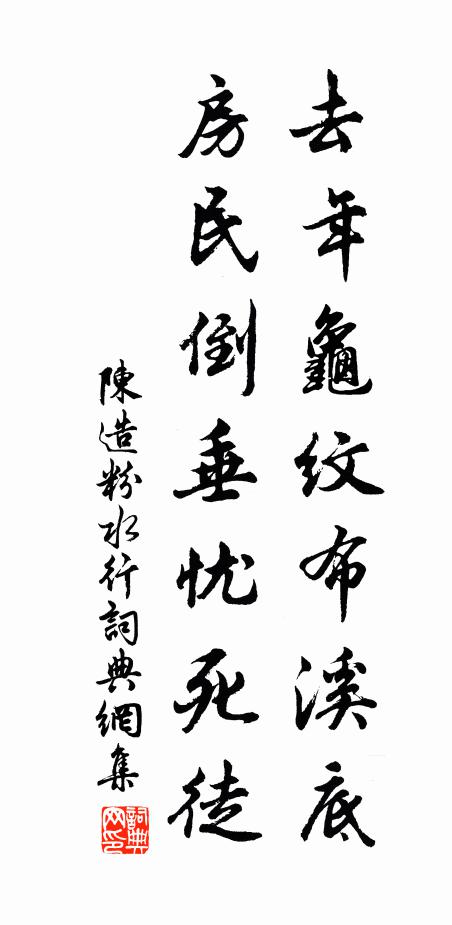 去年龜紋布溪底
房民倒垂忧死徒
陳造粉水行詞典網集
詞典网印